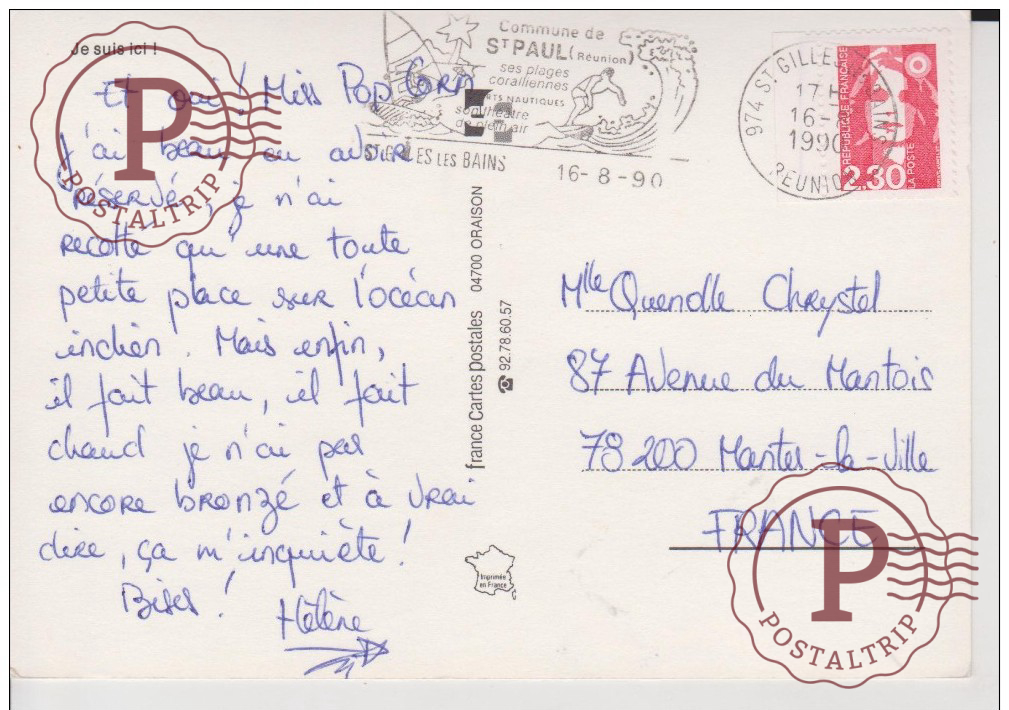 Je suis ici !
Et oui ! Miss Pop Corn
J'ai beau en avoir
réservé, je n'ai
récolté qu'une toute
petite place sur l'océan
indien. Mais enfin,
il fait beau, il fait
chaud je n'ai pas
encore bronzé et à vrai
dire, ça m'inquiète !
Bises !
Hélène
Commune de
ST PAUL (Réunion)
ses plages
coralliennes
NAUTIQUES
son théâtre
de plein air
ST GILLES LES BAINS
16-8-90
974 ST GILLES
17 H
16-8
1990
REUNION
RÉPUBLIQUE FRANÇAISE
2,30
LA POSTE
france Cartes postales 04700 ORAISON
☎ 92.78.60.57
Imprimée
en France
Mlle Quenolle Chrystel
87 Avenue du Mantois
78 200 Mantes-la-Ville
FRANCE
P
POSTALTRIP
P
POSTALTRIP